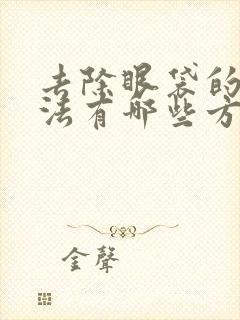 去除眼袋的
法有哪些方
金聲